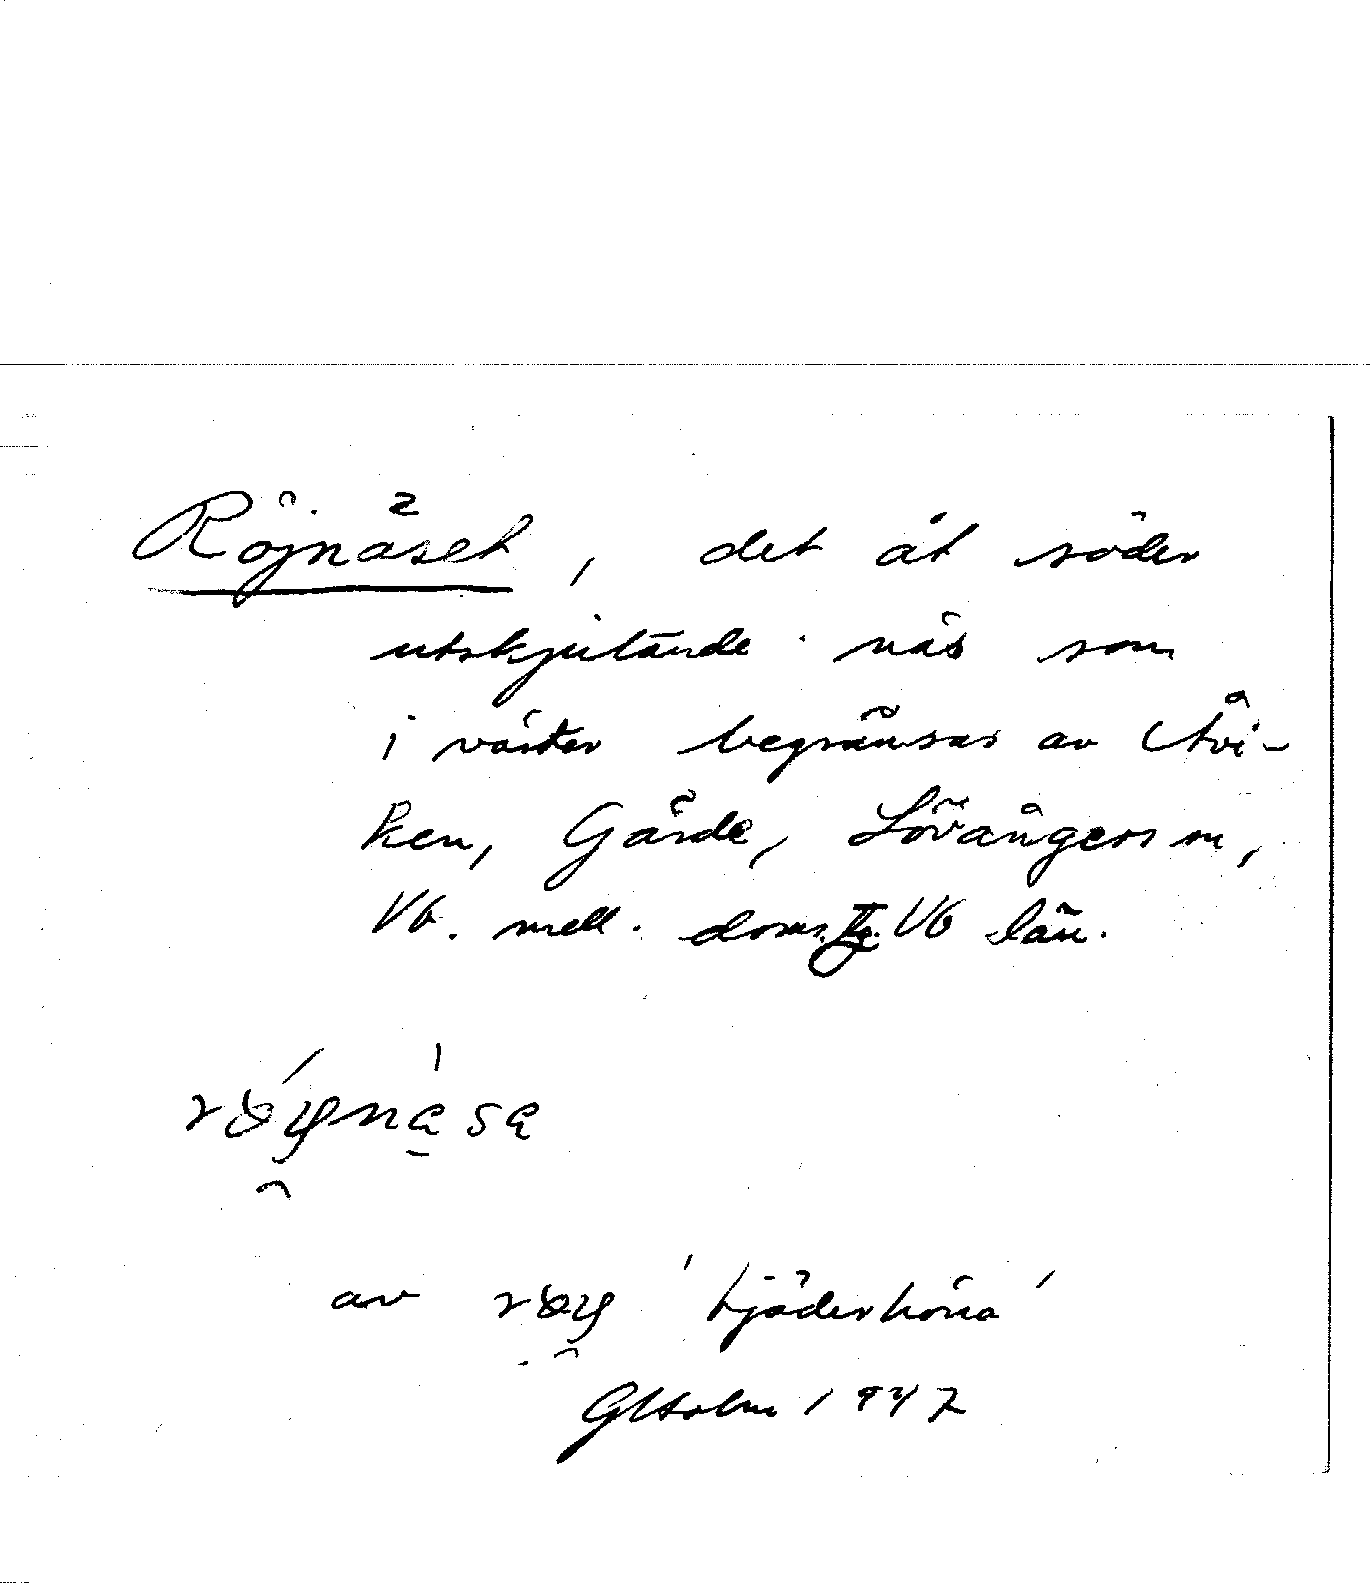 Röjnäset, det åt söder
utskjutande näs som
i väster begränsas av Åvi-
ken, Gärde, Lövångers sn,
Vb. mell. doms. Vb län.
av 'tjäderhöna'
GHolm 1947